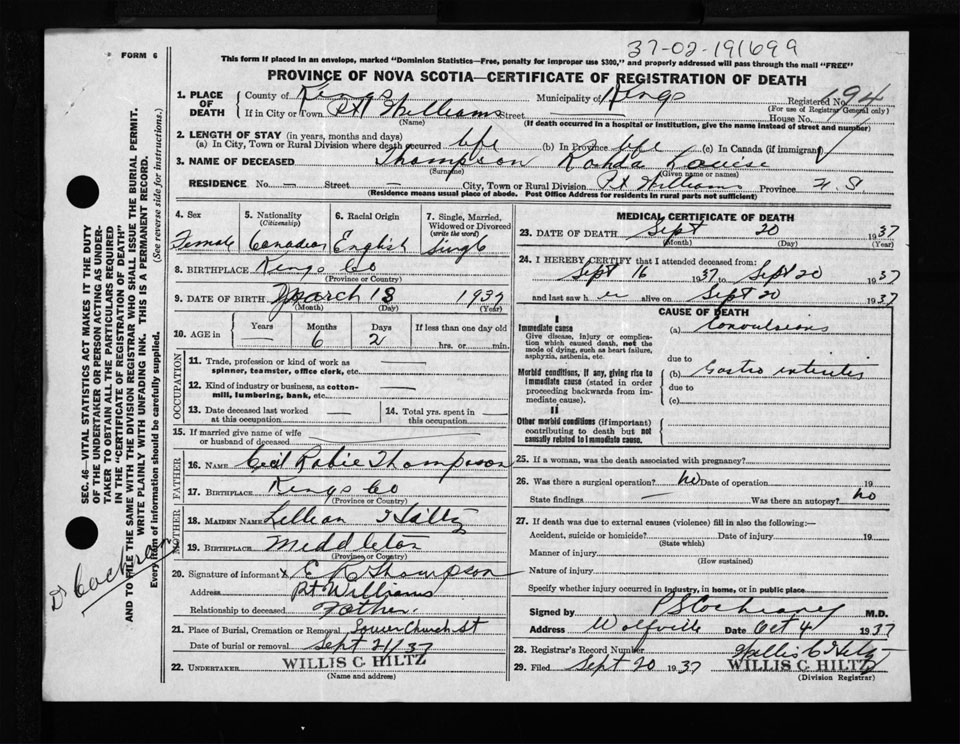 37-02-191699
FORM 6
This form if placed in an envelope, marked "Dominion Statistics—Free, penalty for improper use $300," and properly addressed will pass through the mail "FREE"
PROVINCE OF NOVA SCOTIA—CERTIFICATE OF REGISTRATION OF DEATH
1. PLACE OF DEATH County of Kings Municipality of Kings Registered No. 194
(For use of Registrar General only)
If in City or Town Pt Williams Street House No.
(Name) (If death occurred in a hospital or institution, give the name instead of street and number)
2. LENGTH OF STAY (in years, months and days)
(a) In City, Town or Rural Division where death occurred life (b) In Province life (c) In Canada (if immigrant)
3. NAME OF DECEASED Thompson Louise
(Surname) (Given name or names)
RESIDENCE No. — Street — City, Town or Rural Division Pt Williams Province N.S
(Residence means usual place of abode. Post Office Address for residents in rural parts not sufficient)
4. Sex 5. Nationality (Citizenship) 6. Racial Origin 7. Single, Married, Widowed or Divorced (write the word)
Female Canadian English Single
8. BIRTHPLACE Kings Co
(Province or Country)
9. DATE OF BIRTH March 18 1937
(Month) (Day) (Year)
10. AGE in Years Months Days If less than one day old
— 6 2 hrs. or min.
OCCUPATION
11. Trade, profession or kind of work as spinner, teamster, office clerk, etc. —
12. Kind of industry or business, as cotton-mill, lumbering, bank, etc. —
13. Date deceased last worked at this occupation — 14. Total yrs. spent in this occupation —
15. If married give name of wife or husband of deceased
FATHER
16. NAME Cecil Robie Thompson
17. BIRTHPLACE Kings Co
(Province or Country)
MOTHER
18. MAIDEN NAME Lillian Hiltz
19. BIRTHPLACE Middleton
(Province or Country)
20. Signature of informant x C R Thompson
Address Pt Williams
Relationship to deceased Father
21. Place of Burial, Cremation or Removal Lower Church St
Date of burial or removal Sept 21/37
22. UNDERTAKER WILLIS C. HILTZ
(Name and address)
MEDICAL CERTIFICATE OF DEATH
23. DATE OF DEATH Sept 20 1937
(Month) (Day) (Year)
24. I HEREBY CERTIFY that I attended deceased from:
Sept 16 1937 to Sept 20 1937
and last saw her alive on Sept 20 1937
CAUSE OF DEATH
I
Immediate cause
Give disease, injury or complication which caused death, not the mode of dying, such as heart failure, asphyxia, asthenia, etc.
(a) Convulsions
due to
Morbid conditions, if any, giving rise to immediate cause (stated in order proceeding backwards from immediate cause).
(b) Gastro enteritis
due to
(c)
II
Other morbid conditions (if important) contributing to death but not causally related to immediate cause.
25. If a woman, was the death associated with pregnancy?
26. Was there a surgical operation? No Date of operation 19
State findings — Was there an autopsy? No
27. If death was due to external causes (violence) fill in also the following:—
Accident, suicide or homicide? Date of injury 19
(State which)
Manner of injury
(How sustained)
Nature of injury
Specify whether injury occurred in industry, in home, or in public place
Signed by M.D.
Address Wolfville Date Oct 4 1937
28. Registrar's Record Number
Willis C Hiltz
29. Filed Sept 20 1937 WILLIS C. HILTZ
(Division Registrar)
SEC. 46—VITAL STATISTICS ACT MAKES IT THE DUTY
OF THE UNDERTAKER OR PERSON ACTING AS UNDER-
TAKER TO OBTAIN ALL THE PARTICULARS REQUIRED
IN THE "CERTIFICATE OF REGISTRATION OF DEATH"
AND TO FILE THE SAME WITH THE DIVISION REGISTRAR WHO SHALL ISSUE THE BURIAL PERMIT.
WRITE PLAINLY WITH UNFADING INK. THIS IS A PERMANENT RECORD.
Every item of information should be carefully supplied. (See reverse side for instructions.)